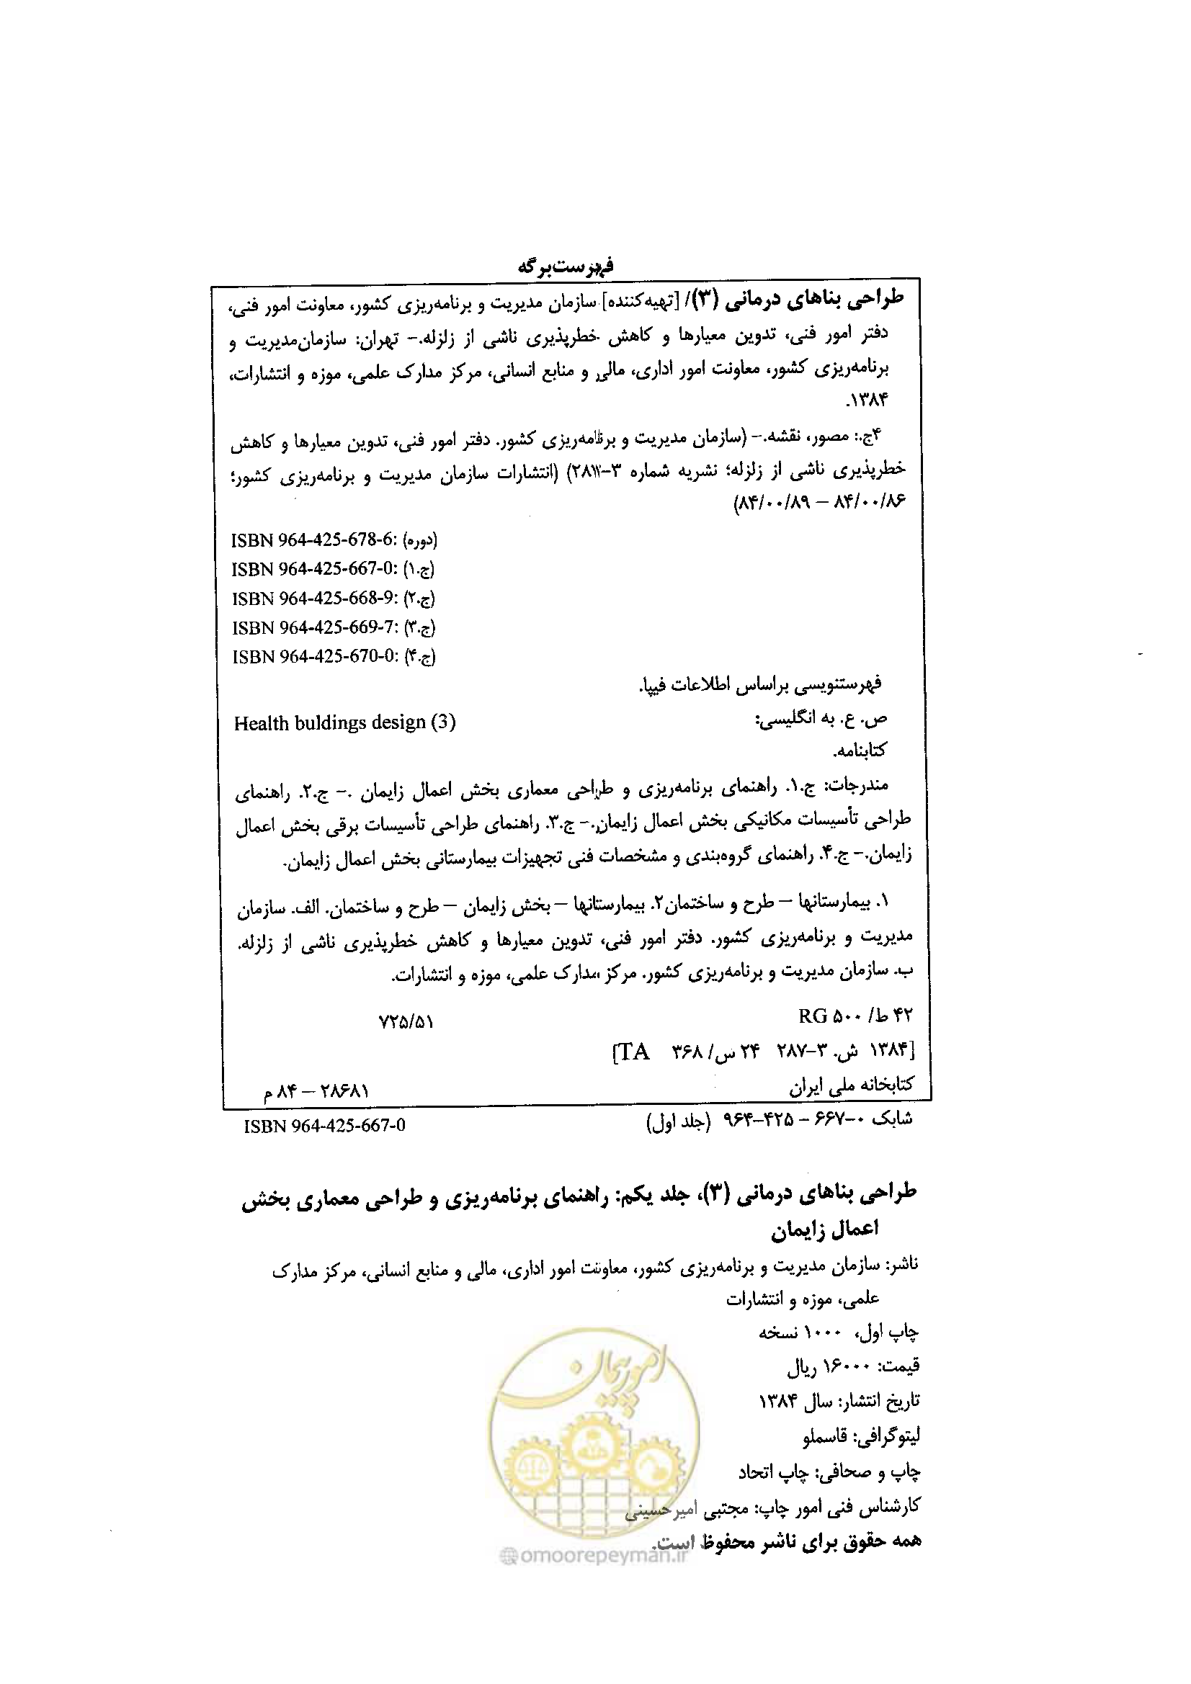 فهرست‌برگه
طراحی بناهای درمانی (۳)/ [تهیه‌کننده] سازمان مدیریت و برنامه‌ریزی کشور، معاونت امور فنی،
دفتر امور فنی، تدوین معیارها و کاهش خطرپذیری ناشی از زلزله.– تهران: سازمان‌مدیریت و
برنامه‌ریزی کشور، معاونت امور اداری، مالی و منابع انسانی، مرکز مدارک علمی، موزه و انتشارات،
۱۳۸۴.
۴ج.: مصور، نقشه.– (سازمان مدیریت و برنامه‌ریزی کشور. دفتر امور فنی، تدوین معیارها و کاهش
خطرپذیری ناشی از زلزله؛ نشریه شماره (انتشارات سازمان مدیریت و برنامه‌ریزی کشور؛
۸۴/۰۰/۸۶ – ۸۴/۰۰/۸۹)
ISBN 964-425-678-6: (دوره)
ISBN 964-425-667-0: (ج.۱)
ISBN 964-425-668-9: (ج.۲)
ISBN 964-425-669-7: (ج.۳)
ISBN 964-425-670-0: (ج.۴)
فهرستنویسی براساس اطلاعات فیپا.
ص. ع. به انگلیسی: Health buldings design (3)
کتابنامه.
مندرجات: ج.۱. راهنمای برنامه‌ریزی و طراحی معماری بخش اعمال زایمان .– ج.۲. راهنمای
طراحی تأسیسات مکانیکی بخش اعمال زایمان.– ج.۳. راهنمای طراحی تأسیسات برقی بخش اعمال
زایمان.– ج.۴. راهنمای گروه‌بندی و مشخصات فنی تجهیزات بیمارستانی بخش اعمال زایمان.
۱. بیمارستانها – طرح و ساختمان ۲. بیمارستانها – بخش زایمان – طرح و ساختمان. الف. سازمان
مدیریت و برنامه‌ریزی کشور. دفتر امور فنی، تدوین معیارها و کاهش خطرپذیری ناشی از زلزله.
ب. سازمان مدیریت و برنامه‌ریزی کشور. مرکز مدارک علمی، موزه و انتشارات.
۴۲ ط/ ۵۰۰ RG ۷۲۵/۵۱
[۱۳۸۴ ش. ۳–۲۸۷ ۲۴ س/ ۳۶۸ TA]
کتابخانه ملی ایران ۲۸۶۸۱ – ۸۴ م
شابک ۰–۶۶۷ – ۴۲۵–۹۶۴ (جلد اول) ISBN 964-425-667-0
طراحی بناهای درمانی (۳)، جلد یکم: راهنمای برنامه‌ریزی و طراحی معماری بخش
اعمال زایمان
ناشر: سازمان مدیریت و برنامه‌ریزی کشور، معاونت امور اداری، مالی و منابع انسانی، مرکز مدارک
علمی، موزه و انتشارات
چاپ اول، ۱۰۰۰ نسخه
قیمت: ۱۶۰۰۰ ریال
تاریخ انتشار: سال ۱۳۸۴
لیتوگرافی: قاسملو
چاپ و صحافی: چاپ اتحاد
کارشناس فنی امور چاپ: مجتبی امیرحسینی
همه حقوق برای ناشر محفوظ است.
امور پیمان
@omoorepeyman.ir